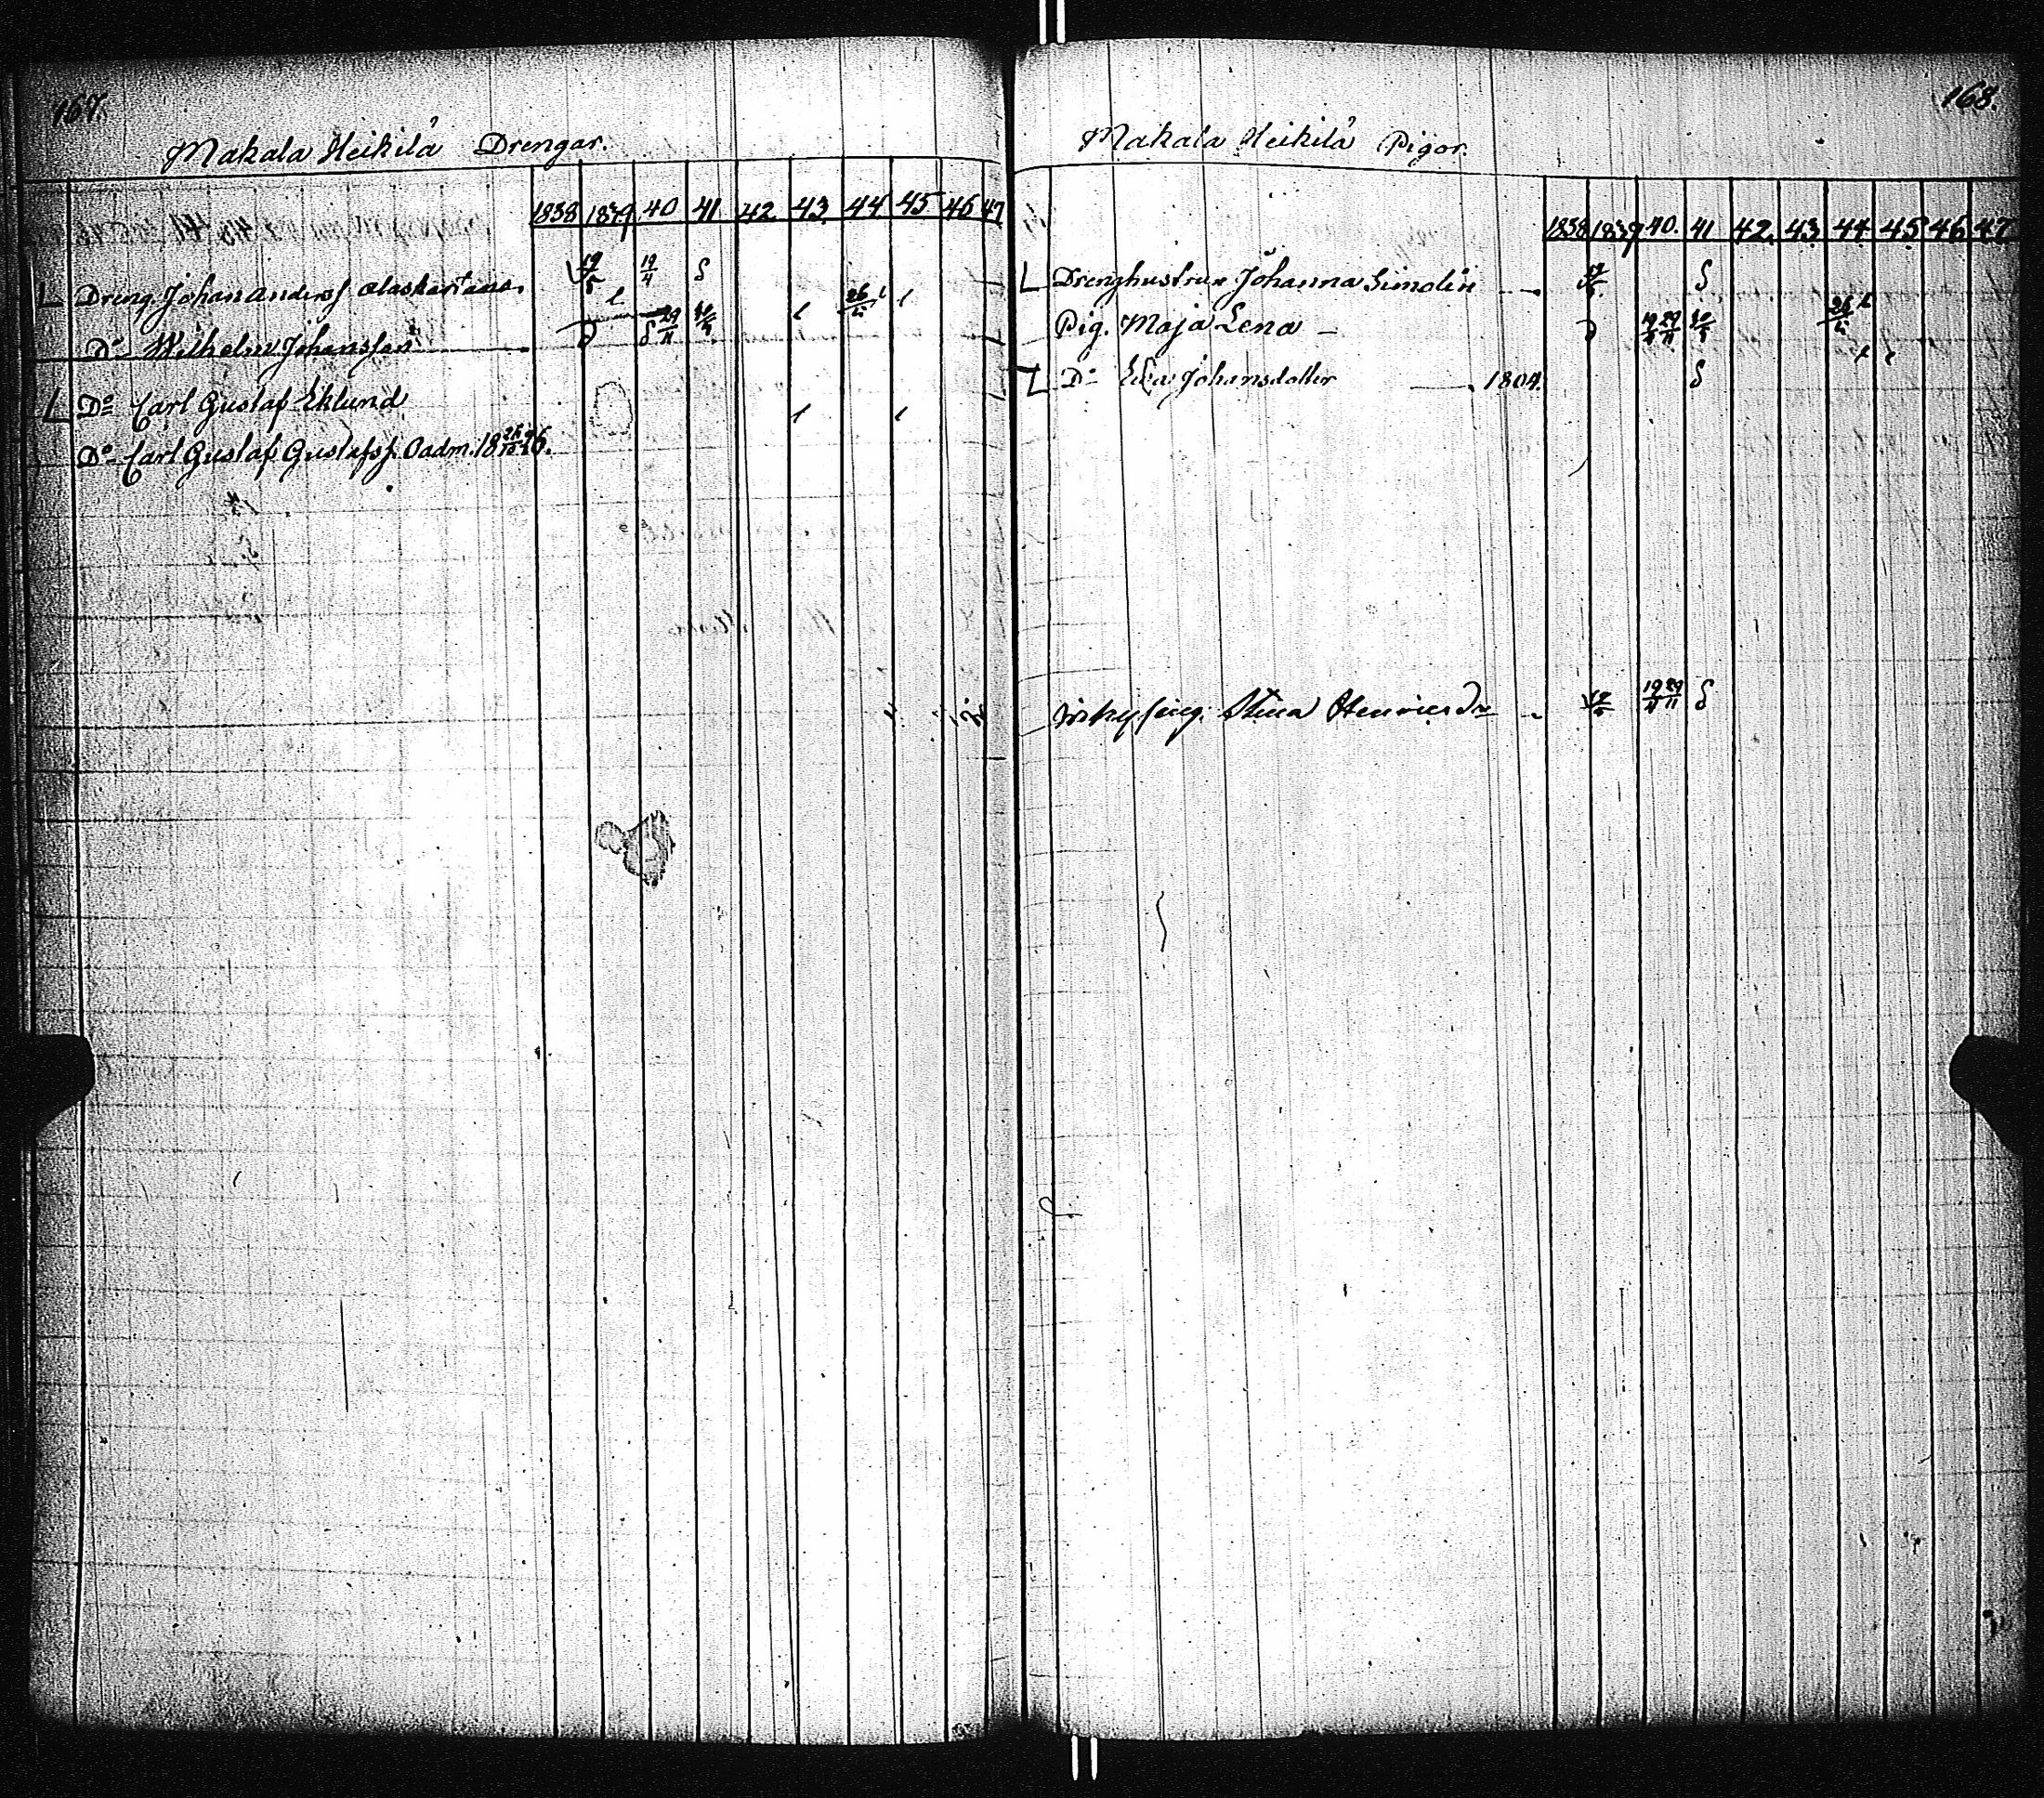 167.
Makala Heikilä Drengar.
1838 1839 40 41 42 43 44 45 46 47
Dreng. Johan Anderss Alaskartano. 19/5 19/4 S
Do Wilhelm Johansson 29/11 26
Do Carl Gustaf Eklund
Do Carl Gustaf Gustafss. Oadm. 18 26.
168.
Makala Heikilä Pigor.
1838 1839 40. 41 42. 43 44 45 46 47
Drenghustrun Johanna Simolin S
Pig. Maja Lena 19/4 29/11 26
Do Eva Johansdotter 1804. S
Stina Henricsdr 19/4 29/11 S